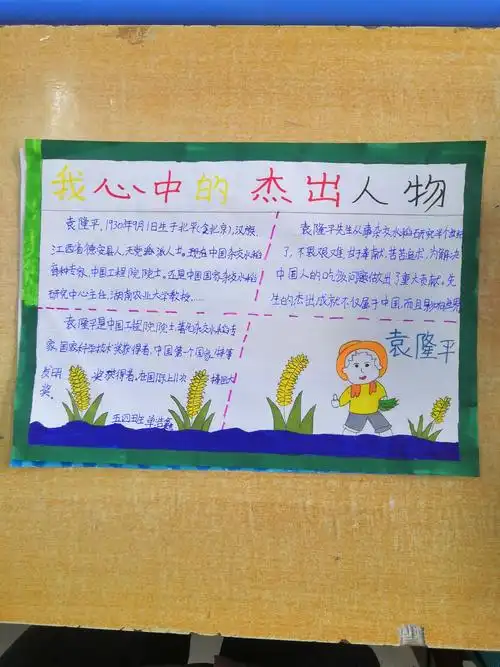 我心中的杰出人物
袁隆平,1930年9月1日生于北平(今北京),汉族,
江西省德安县人,无党派人士。现在中国杂交水稻
育种专家,中国工程院院士。还是中国国家杂交水稻
研究中心主任,湖南农业大学教授……
袁隆平先生从事杂交水稻研究半个世纪
了,不畏艰难,甘于奉献,苦苦追求,为解决
中国人的吃饭问题做出了重大贡献。先
生的杰出成就不仅属于中国,而且影响世界
袁隆平是中国工程院院士,著名杂交水稻专
家,国家科学技术奖获得者,中国第一个国家特等
发明奖获得者。在国际上11次
奖。
五四班
袁隆平